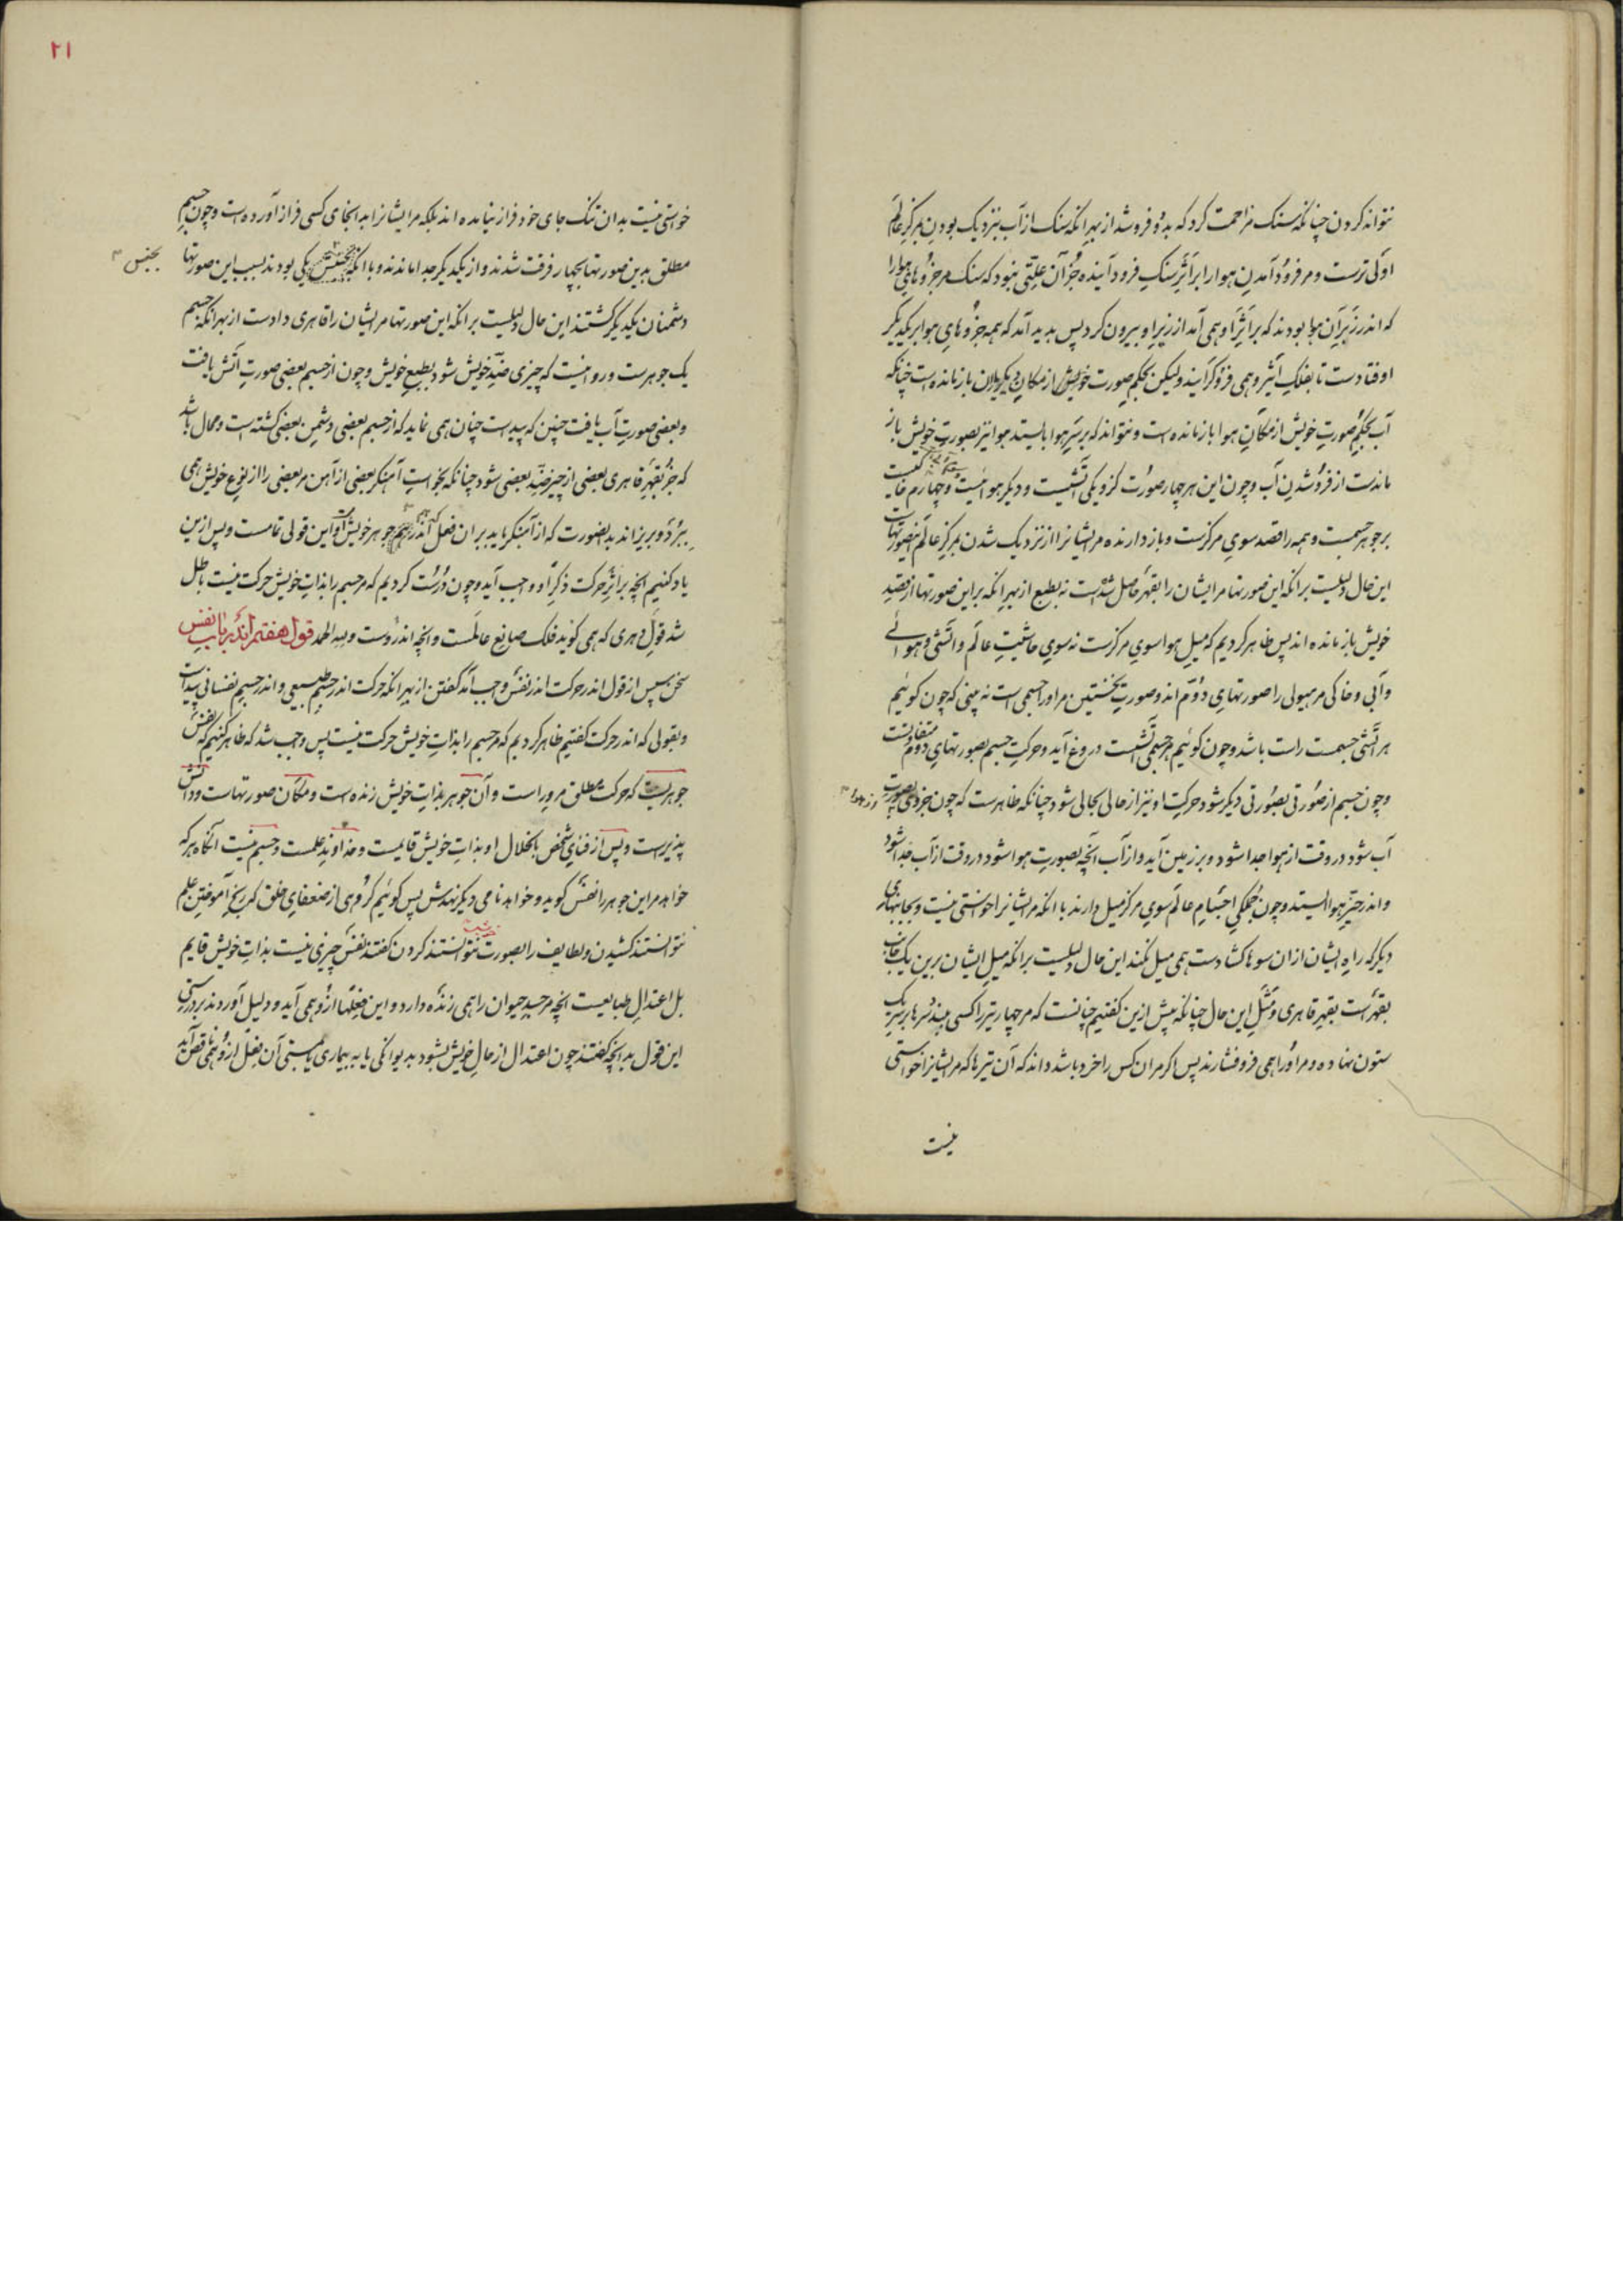 نتواند کردن چنانکه سنک مزاحمت کرد که بدو فروشد از بهر انکه سنک از آب بنزدیک بودن بمرکز عالم
اولی ترست و مر فرود آمدن هوا را بر اثر سنک فرود آینده جز آن علتی نبود که سنک مر جزوهای هوا را
که اندر زیر آن هوا بودند که بر اثر او همی آمد از زیر او بیرون کرد پس بدید آمد که همه جزوهای هوا بر یکدیگر
اوفتادست تا بفلک اثیر و همی فرو کرایند ولیکن بحکم صورت خویش از مکان دیگر یاران باز مانده است چنانکه
آب بحکم صورت خویش از مکان هوا باز مانده است و نتواند که بر سر هوا بایستد هوا نیز بصورت خویش باز
ماندست از فرو شدن آب و چون این هر چهار صورت کزو یکی آتشیست و دیکر هوائیست و چهارم خاکیست
بر جوهر جسمست و همه را قصد سوی مرکزست و باز دارنده مر ایشانرا از نزدیک شدن بمرکز عالم این صورتهاست
این حال دلیلست بر انکه این صورتها مر ایشان را بقهر حاصل شده است نه بطبع از بهر انکه بر این صورتها از مقصد
خویش باز مانده اند پس ظاهر کردیم که میل هوا سوی مرکزست نه سوی حاشیت عالم و آتشی و هوائی
و آبی و خاکی مر هیولی را صورتهای دوم اند و صورت نخستین مر او را جسمی است نه بینی که چون کوئیم
هر آتشی جسمست راست باشد و چون کوئیم هر جسمی آتشست دروغ آید و حرکت جسم بصورتهای دوم متفاوتست
و چون جسم از صورتی بصورتی دیکر شود حرکت او نیز از حالی بحالی شود چنانکه ظاهرست که چون جزوی بصورت
آب شود در وقت از هوا جدا شود و بر زمین آید و از آب آنچه بصورت هوا شود در وقت از آب جدا شود
و اندر حیز هوا ایستد و چون جملکی اجسام عالم سوی مرکز میل دارند با انکه مر ایشانرا خواستی نیست و بجانبهای
دیکر که راه ایشان ازان سوها کشادست همی میل نکنند این حال دلیلست بر انکه میل ایشان برین یک جانب
بقهرست بقهر قاهری و مثل این حال چنانکه پیش ازین کفتیم چنانست که مر چهار تیر را کسی بیند سرها بر سر یک
ستون نهاده و مر او را همی فرو فشارند پس اکر مران کس را خرد باشد داند که آن تیرها که مر ایشانرا خواستی
نیست
۲۱
خواستی نیست بدان تنک جای خود فراز نیامده اند بلکه مر ایشانرا بدانجای کسی فراز آورده است و چون جسم
مطلق بدین صورتها بچهار فرقت شدند و از یکدیکر جدا ماندند و با انکه بجنس یکی بودند بسبب این صورتها
بجنس
دشمنان یکدیکر کشتند این حال دلیلست بر انکه این صورتها مر ایشان را قاهری دادست از بهر انکه جسم
یک جوهرست و روا نیست که چیزی ضد خویش شود بطبع خویش و چون از جسم بعضی صورت آتش یافت
و بعضی صورت آب یافت چنین که پیداست چنان همی نماید که از جسم بعضی دشمن بعضی کشته است و محال باشد
که جز بقهر قاهری بعضی از چیز ضد بعضی شود چنانکه بخواست آهنکر بعضی از آهن مر بعضی را از نوع خویش همی
ببرد و بریزاند بدانصورت که از آهنکر یابد بران فعل اندر هم جوهر خویش و این قولی تمامست و پس ازین
یاد کنیم انچه بر اثر حرکت ذکر او واجب آید و چون درست کردیم که مر جسم را بذات خویش حرکت نیست باطل
شد قول دهری که همی کوید فلک صانع عالمست و انچه اندروست ولله الحمد قول هفتم اندر باب نفس
سخن سپس از قول اندر حرکت اندر نفس واجب آمد کفتن از بهر انکه حرکت اندر جسم طبیعی و اندر جسم نفسانی پیداست
و بقولی که اندر حرکت کفتیم ظاهر کردیم که مر جسم را بذات خویش حرکت نیست پس واجب شد که ظاهر کنیم که نفس
جوهریست که حرکت مطلق مرو راست و آن جوهر بذات خویش زنده است و مکان صورتهاست و دانش
پذیرست و پس از فنای شخص بانحلال او بذات خویش قایمست و خداوند علمست و جسم نیست آنکاه هر که
خواهد مر این جوهر را نفس کوید و خواهد نامی دیکر نهدش پس کوئیم کروهی از ضعفای خلق که رنج آموختن علم
نتوانستند کشیدن و لطایف را بصورت نتوانستند کردن کفتند نفس چیزی نیست بذات خویش قایم
بل اعتدال طبایعست انچه مر جسد حیوان را همی زنده دارد و این فعلها ازو همی آید و دلیل آوردند بر درستی
این قول بدانچه کفتند چون اعتدال از حال خویش بشود بدیوانکی یا به بیماری یا مستی آن فعل ازو همی ناقص آید